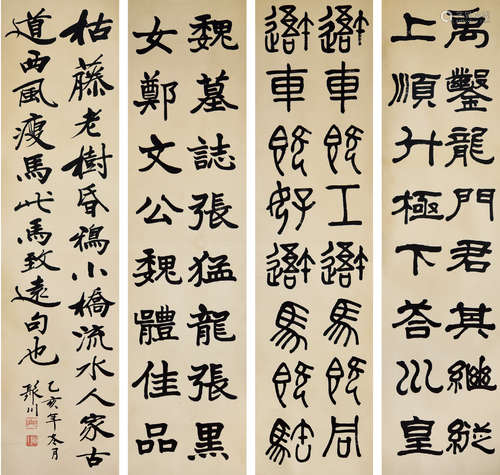 禹鑿龍門君其繼縱
上順斗極下荅巛皇
車既工馬既同
車既好馬既
魏墓誌張猛龍張黑
女鄭文公魏體佳品
枯藤老樹昏鴉小橋流水人家古
道西風瘦馬此馬致遠句也
乙亥年冬月